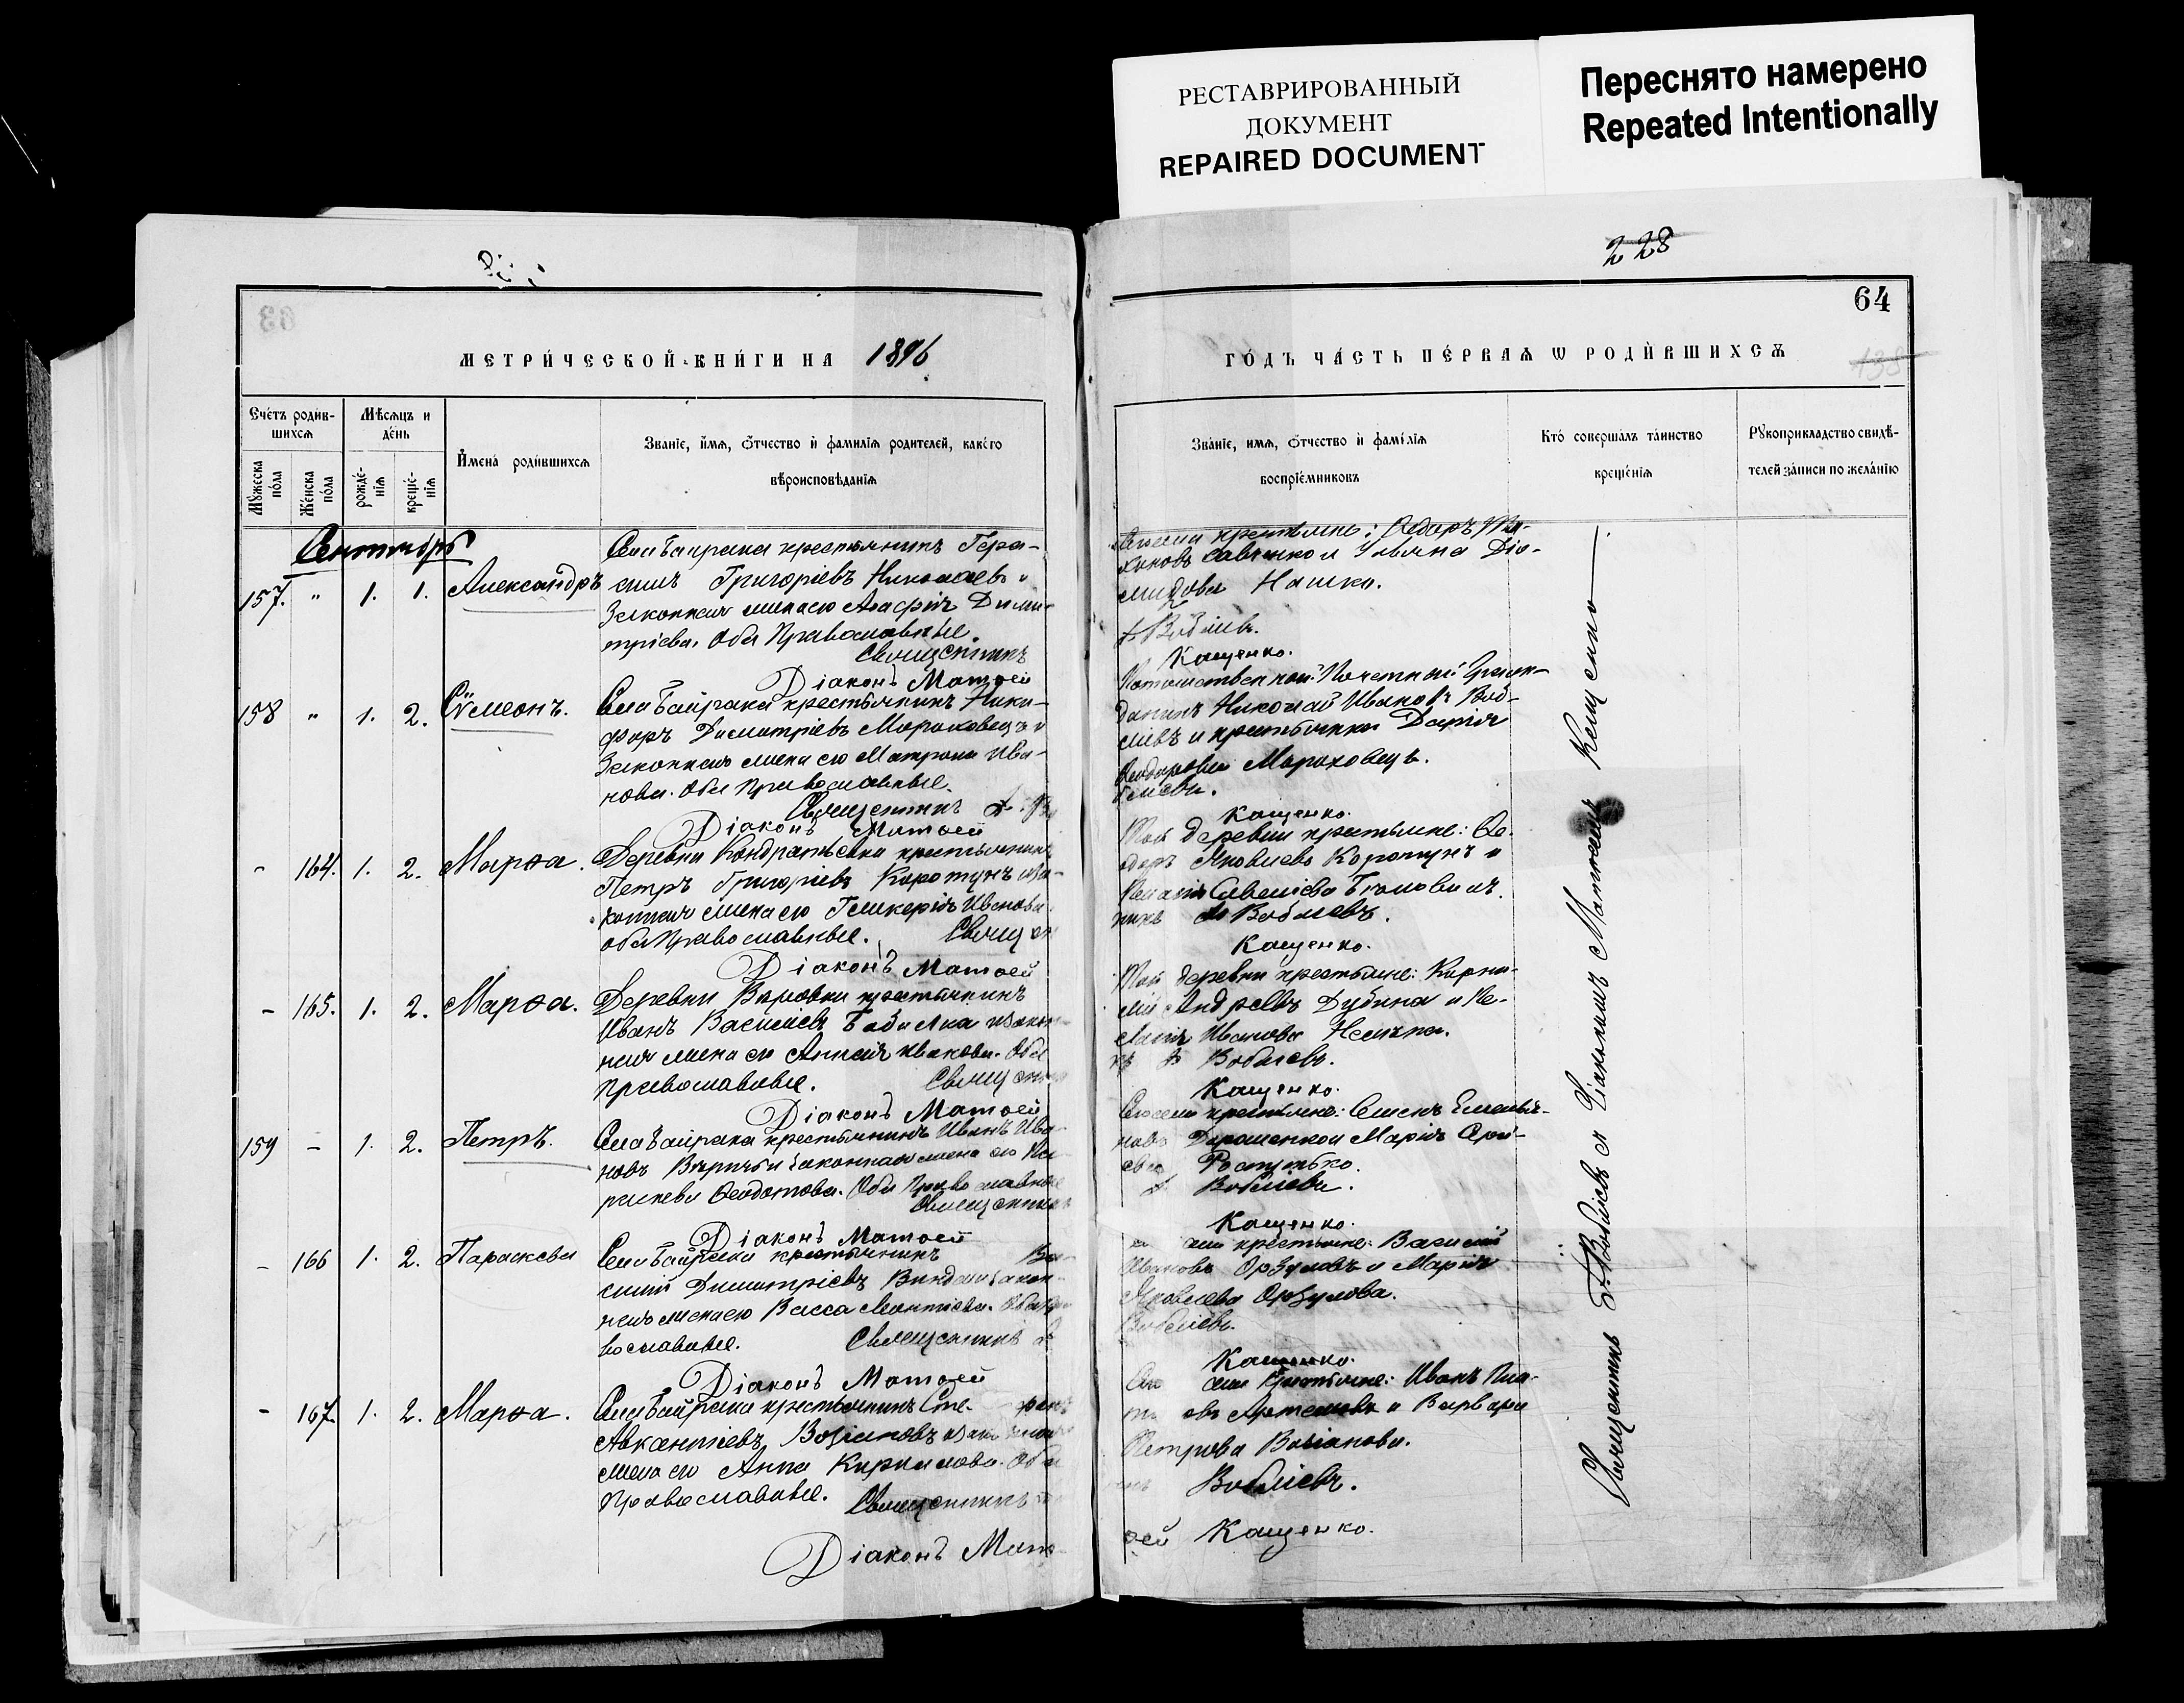 РЕСТАВРИРОВАННЫЙ
ДОКУМЕНТ
REPAIRED DOCUMENT
Переснято намерено
Repeated Intentionally
228
64
МЕТРИ́ЧЕСКОЙ КНИ́ГИ НА 1896
ГО́ДЪ ЧА́СТЬ ПЕ́РВАѦ Ѡ РОДИ́ВШИХСѦ
138
Сче́тъ роди́в-
шихсѧ
Мѣсѧцъ и
де́нь
Мꙋжеска
по́ла
Же́нска
по́ла
рожде́-
нїѧ
креще́-
нїѧ
И҆мена̀ роди́вшихсѧ
Зва́нїе, и҆́мѧ, ѻ҆́тчество и҆ фами́лїѧ родителей, како́го
вѣроисповѣ́данїѧ
Зва́нїе, имѧ, ѻ҆́тчество и҆ фами́лїѧ
воспрїе́мниковъ
Кто̀ соверша́лъ та́инство
креще́нїѧ
Рꙋкоприкладство свидѣ́-
телей за́писи по жела́нїю
Сентябрь
157. " 1. 1. Александръ
Села Байрака крестьянинъ Гера-
симъ Григоріевъ Николаевъ и
Законная жена его Агафія Дими-
тріева. Оба Православные.
Священникъ
Діаконъ Матѳей
крестьяне: Ѳедоръ
Савченко и Ульяна Діо-
мидова Нашка.
Кащенко.
158 " 1. 2. Сѵмеонъ.
Села Байрака крестьянинъ Ники-
форъ Димитріевъ Мороховецъ и
Законная жена его Матрона Ива-
нова. Оба Православные.
Священникъ
Діаконъ Матѳей
Потомственный Почетный Граж-
данинъ Николай Ивановъ Воб-
лиевъ и крестьянка Дарія
Ѳеодорова Мороховецъ.
Кащенко.
- 164. 1. 2. Марѳа.
Деревни Кондратьевки крестьянинъ
Петръ Григоріевъ Коротунъ и за-
конная жена его Гликерія Иванова
оба Православные. Священ
Діаконъ Матѳей
Той деревни крестьяне: Ѳе-
Яковлевъ Коротунъ и
Савеліева
никъ Воблиевъ.
Кащенко.
- 165. 1. 2. Марѳа.
Деревни крестьянинъ
Иванъ Василіевъ и закон-
ная жена его Анисія Иванова. Оба
Православные. Священ
Діаконъ Матѳей
Той деревни крестьяне: Корни-
лій Андреевъ Дубина и Пе-
лагія Иванова
Воблиевъ.
Кащенко.
159 - 1. 2. Петръ.
Села Байрака крестьянинъ Иванъ Ива-
новъ и законная жена его Па-
раскева Ѳеодотова. Оба Православные
Священникъ
Діаконъ Матѳей
крестьяне: Семенъ Емелья-
новъ Дорошенко и Марія
Воблиевъ.
Кащенко.
- 166 1. 2. Параскева
Села Байрака крестьянинъ Ва-
силій Димитріевъ и закон-
ная жена его Васса Леонтіева. Оба Пра-
вославные. Священникъ
Діаконъ Матѳей
крестьяне: Василій
Ивановъ Орѣуловъ и Марія
Яковлева Орѣулова.
Воблиевъ.
Кащенко.
- 167. 1. 2. Марѳа.
Села Байрака крестьянинъ Сте- фанъ
Авксентіевъ Возіановъ и законная
жена его Анна Кириллова. Оба
Православные. Священникъ
Діаконъ Матѳ
крестьяне: Иванъ
и Варвара
Петрова Возіанова.
Воблиевъ.
ѳей Кащенко.
Священникъ Воблиевъ и Діакономъ Матѳеемъ Кащенко